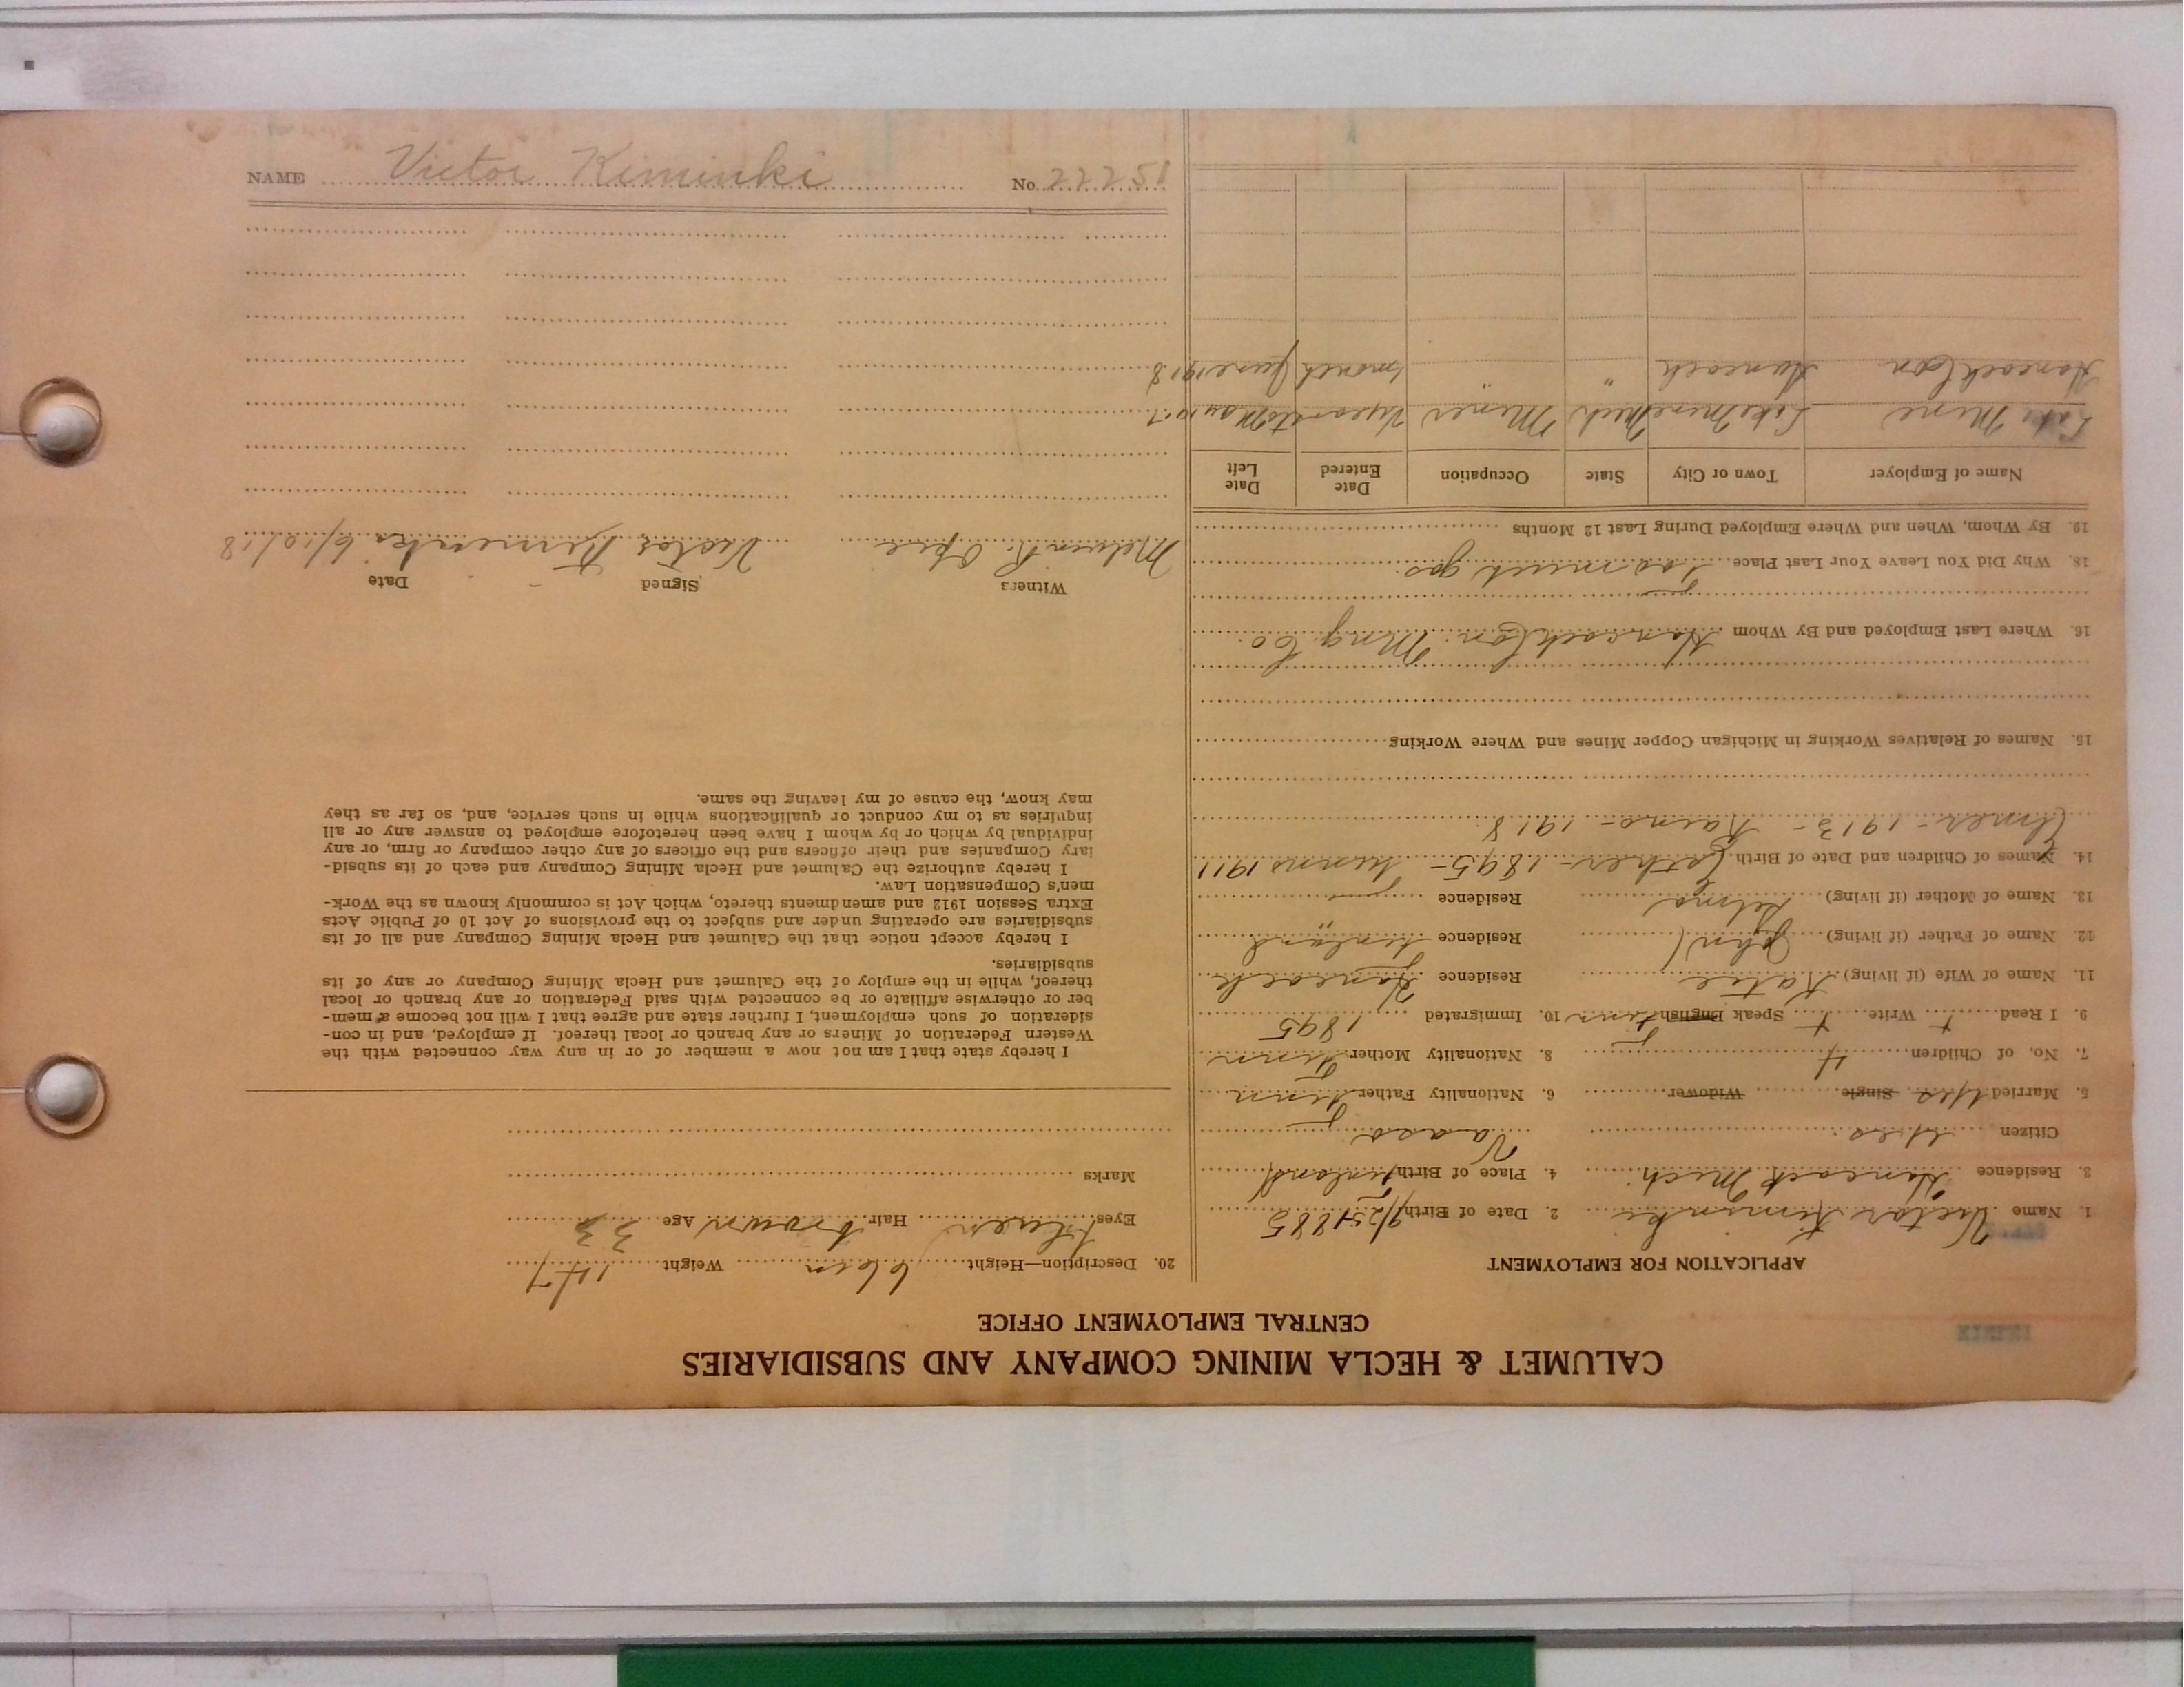 CALUMET & HECLA MINING COMPANY AND SUBSIDIARIES
CENTRAL EMPLOYMENT OFFICE
APPLICATION FOR EMPLOYMENT
1. Name Victor Kiminki 2. Date of Birth 9/25-1885
3. Residence Hancock Mich. 4. Place of Birth Finland
Citizen Yes Vaasa
5. Married Yes Single Widower 6. Nationality Father Finn
7. No. of Children 4 8. Nationality Mother Finn
9. I Read + Write + Speak English Finn 10. Immigrated 1895
11. Name of Wife (if living) Katie Residence Hancock
12. Name of Father (if living) John Residence Finland
13. Name of Mother (if living) Selma Residence "
14. Names of Children and Date of Birth Esther - 1895 - 1911
Elmer - 1913 - Raino - 1918
15. Names of Relatives Working in Michigan Copper Mines and Where Working
16. Where Last Employed and By Whom Hancock Con. Mng Co.
18. Why Did You Leave Your Last Place Too much gas.
19. By Whom, When and Where Employed During Last 12 Months
Name of Employer Town or City State Occupation Date Entered Date Left
Lake Mine Lake Mine Mich Miner May 1917
Hancock Con Hancock " " 1 month June 1918
20. Description—Height Weight 147
Eyes Hair brown Age 33
Marks
I hereby state that I am not now a member of or in any way connected with the
Western Federation of Miners or any branch or local thereof. If employed, and in con-
sideration of such employment, I further state and agree that I will not become a mem-
ber or otherwise affiliate or be connected with said Federation or any branch or local
thereof, while in the employ of the Calumet and Hecla Mining Company or any of its
subsidiaries.
I hereby accept notice that the Calumet and Hecla Mining Company and all of its
subsidiaries are operating under and subject to the provisions of Act 10 of Public Acts
Extra Session 1912 and amendments thereto, which Act is commonly known as the Work-
men's Compensation Law.
I hereby authorize the Calumet and Hecla Mining Company and each of its subsid-
iary Companies and their officers and the officers of any other company or firm, or any
individual by which or by whom I have been heretofore employed to answer any or all
inquiries as to my conduct or qualifications while in such service, and, so far as they
may know, the cause of my leaving the same.
Witness Signed Date
Melvin R. Opie Victor Kiminki 6/10/18
NAME Victor Kiminki No. 22251